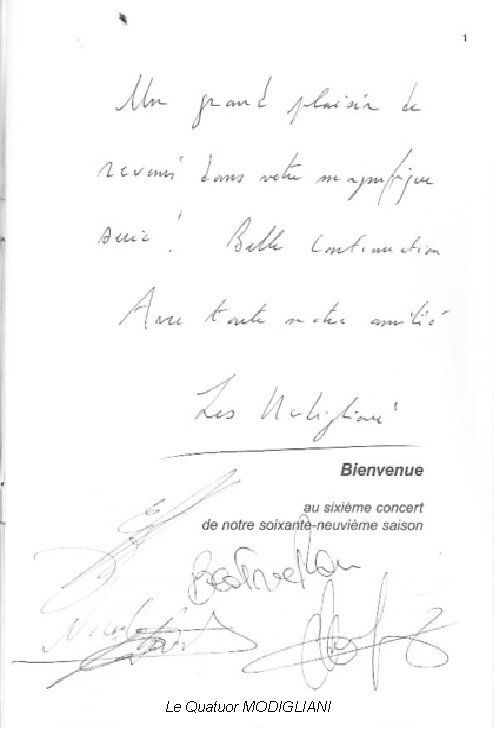 1
Un grand plaisir de
revenir dans votre magnifique
série! Belle continuation
Avec toute notre amitié
Les Modigliani
Bienvenue
au sixième concert
de notre soixante-neuvième saison
Le Quatuor MODIGLIANI